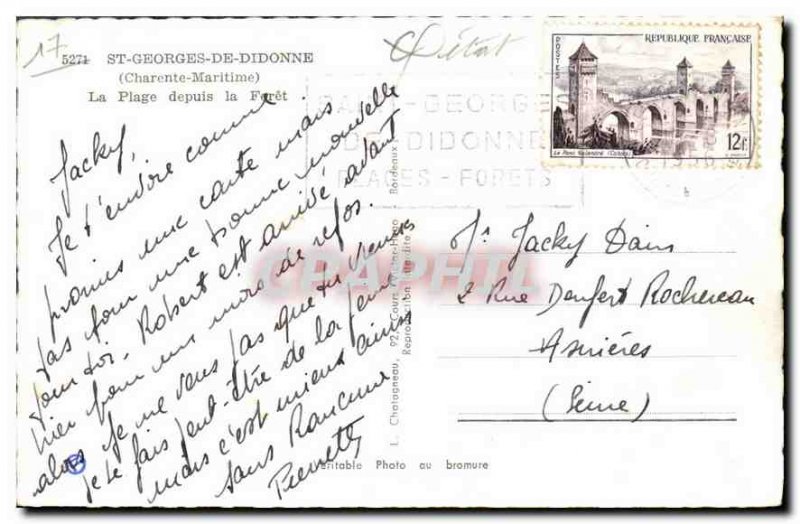 17
5271 ST-GEORGES-DE-DIDONNE
(Charente-Maritime)
La Plage depuis la Forêt
Jacky,
Je t'envoie comme
promis une carte mais
pas pour une bonne nouvelle
pour toi. Robert est arrivé avant
hier pour un mois de repos.
alors je ne veux pas que tu viennes
je te fais peut-être de la peine
mais c'est mieux ainsi
sans Rancune
Pierrette
L. Chatagneau, 92, Cours Victor-Hugo Bordeaux
Reproduction interdite
Véritable Photo au bromure
SAINT-GEORGES
DE DIDONNE
PLAGES - FORETS
1956
RÉPUBLIQUE FRANÇAISE
POSTES
Le Pont Valentré (Cahors)
12F
Mr Jacky Dains
2 Rue Denfert Rochereau
Asnières
(Seine)
CPAPHIL